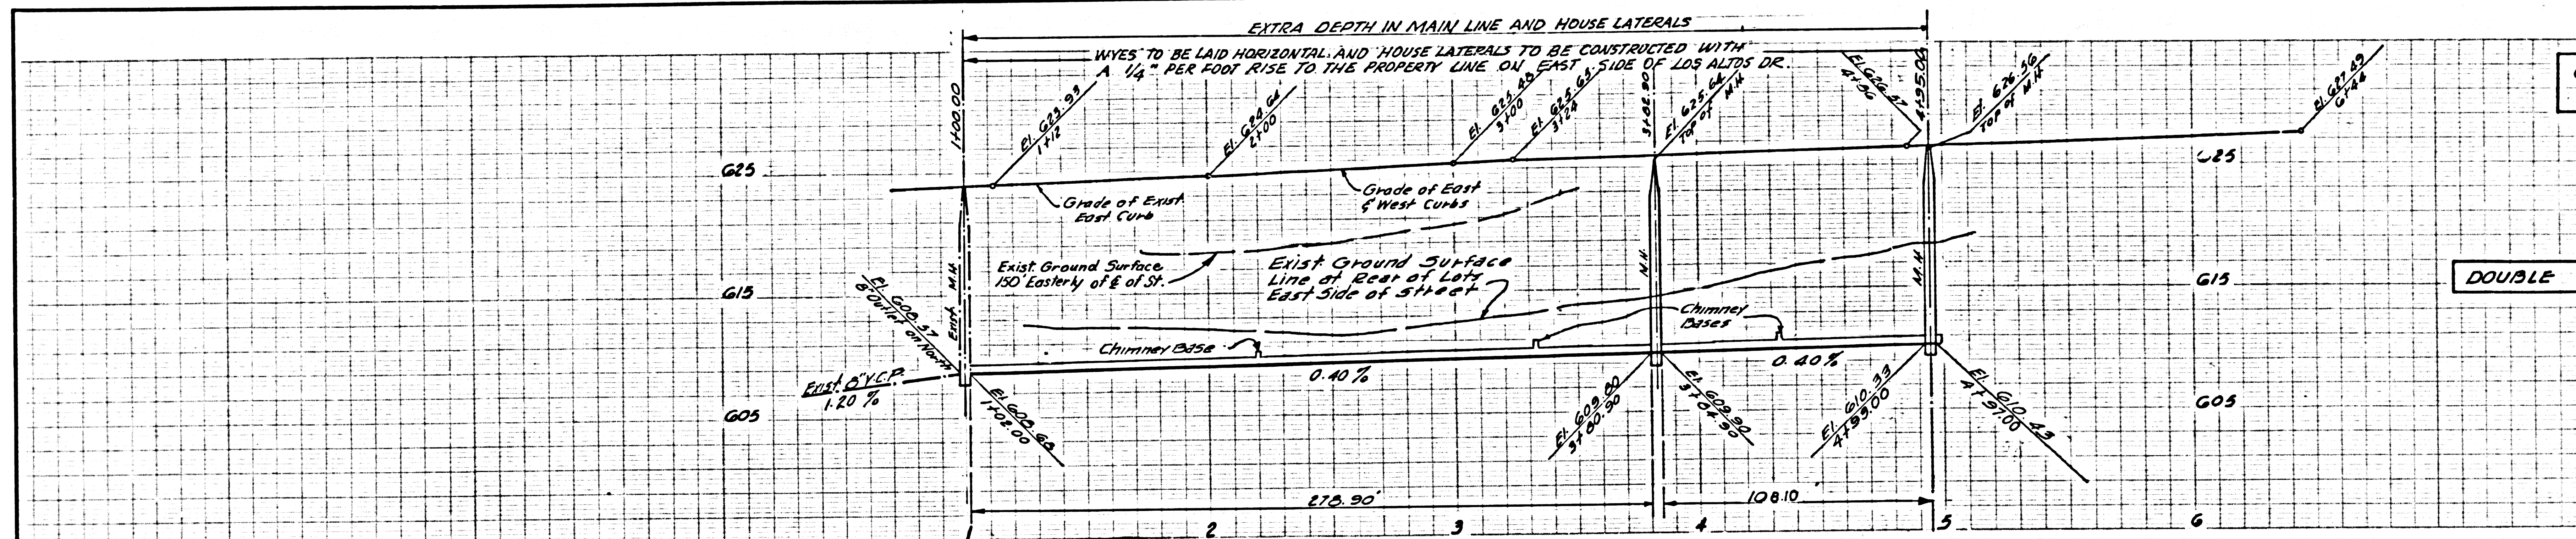 EXTRA DEPTH IN MAIN LINE AND HOUSE LATERALS
WYES TO BE LAID HORIZONTAL AND HOUSE LATERALS TO BE CONSTRUCTED WITH
A 1/4" PER FOOT RISE TO THE PROPERTY LINE ON EAST SIDE OF LOS ALTOS DR.
1+00.00
El. 623.93
1+12
El. 624.64
2+00
El. 625.48
3+00
El. 625.65
3+24
3+82.90
El. 625.64
Top of M.H.
El. 626.57
4+86
4+95.00
El. 626.56
Top of M.H.
El. 627.49
6+44
625
625
Grade of Exist.
East Curb
Grade of East
& West Curbs
Exist. Ground Surface
150' Easterly of ℄ of St.
Exist. Ground Surface
Line at Rear of Lots
East Side of Street
615
615
DOUBLE
Exist. M.H.
M.H.
M.H.
El. 608.57
8" Outlet on North
Chimney Base
Chimney
Bases
Exist. 8" V.C.P.
1.20 %
0.40 %
0.40 %
605
605
El. 608.68
1+02.00
El. 609.80
3+80.90
El. 609.90
3+84.90
El. 610.33
4+93.00
El. 610.43
4+97.00
278.90'
108.10
1
2
3
4
5
6